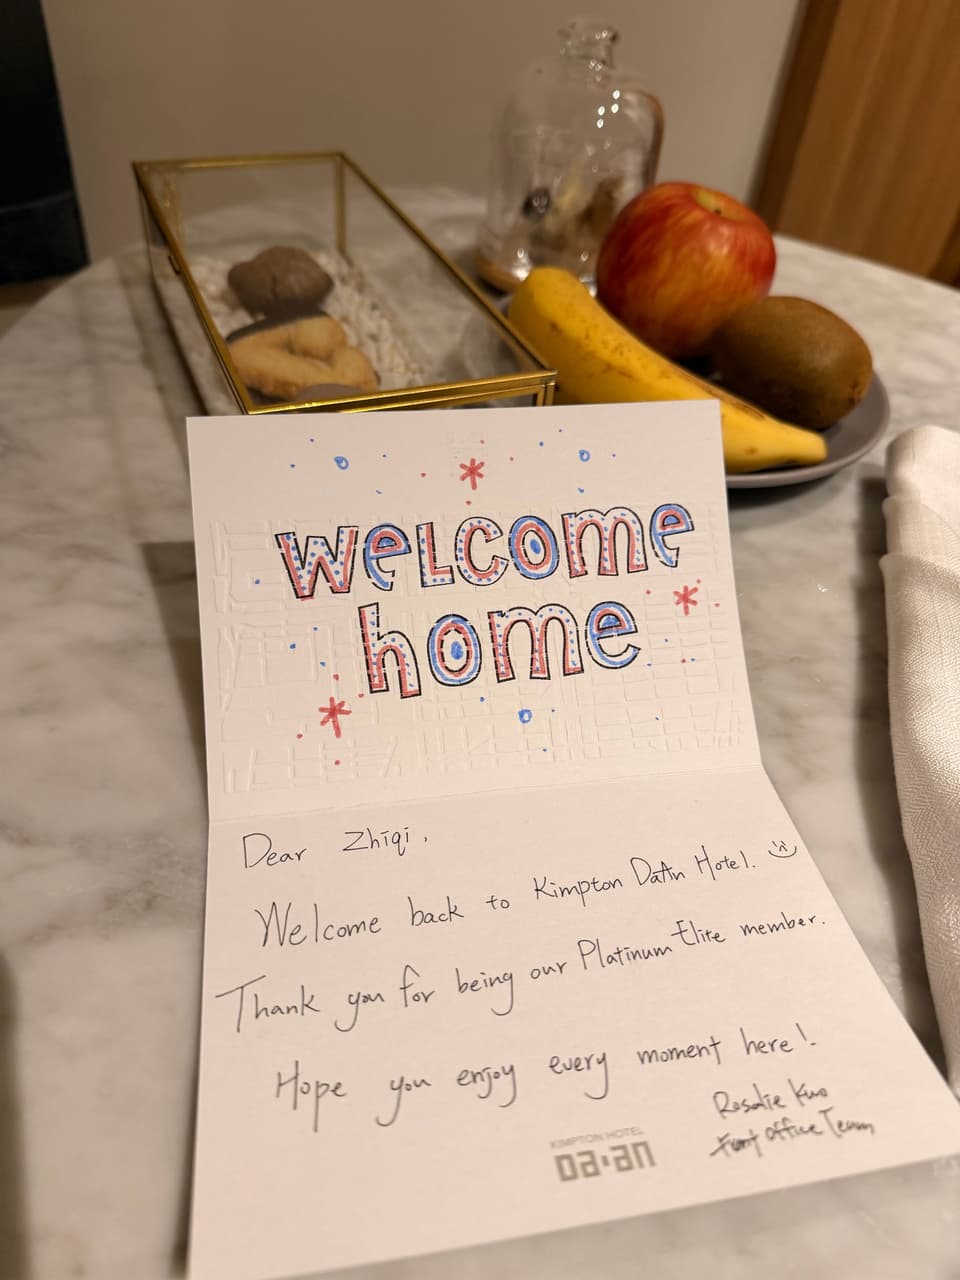 welcome
home
Dear Zhiqi,
Welcome back to Kimpton DaAn Hotel.
Thank you for being our Platinum Elite member.
Hope you enjoy every moment here!
Rosalie Kuo
Front Office Team
KIMPTON HOTEL
Da·an